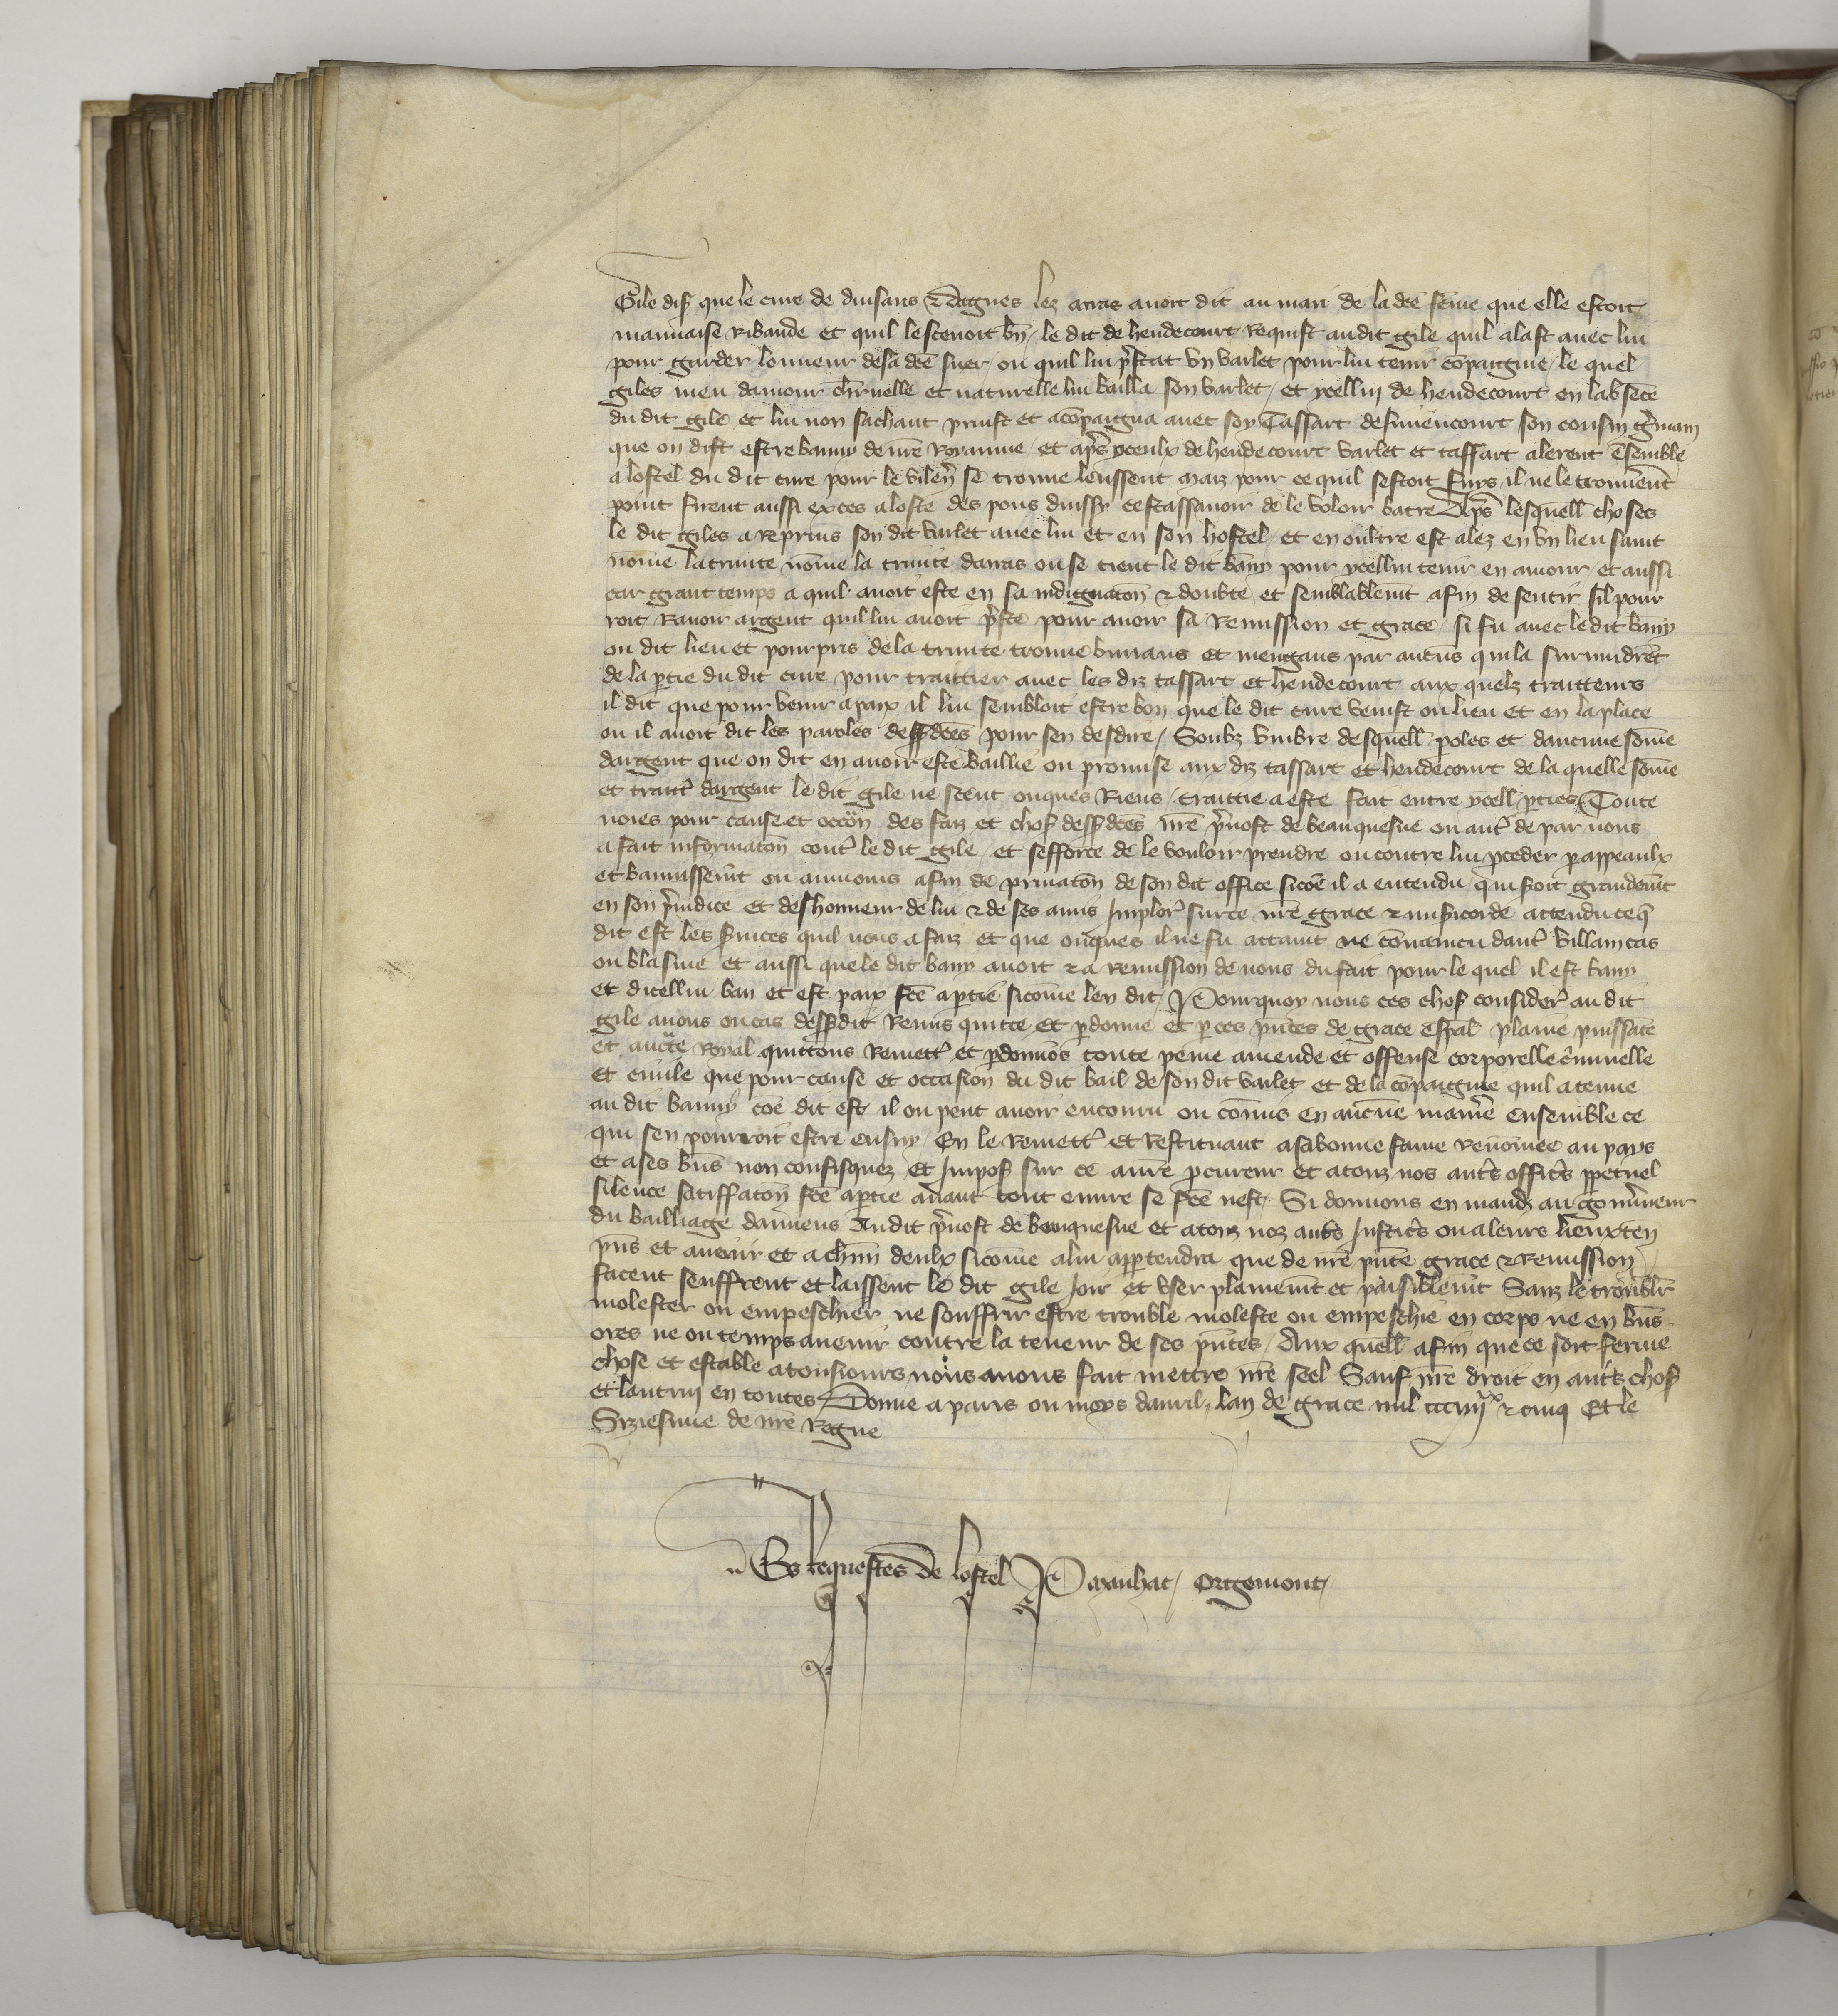 Gile disoit que le cure de duisans & dagnes lez arras auoit dit au mari de la dce feme que elle estoit
mauuaise Ribaude et quil le sceuoit bn / le dit de hendecourt requist au dit gile quil alast auec lui
pour garder lonneur de sa dce suer ou quil lui pstat vn varlet pour lui tenir copaignie / le quel
giles meu damour charnelle et naturelle lui bailla son varlet / et ycellui de hendecourt en labsece
du dit gile et lui non sachant prinst et acopaigna auec soy Tassart de simencourt son cousin gmain
que on dist estre banny de nre Royaume / et aps yceulx de hendecourt varlet et tassart alerent esemble
a lostel du dit cure pour le vilener se trouue leussent maiz pour ce quil sestoit fuys il ne le trouuerent
point firent aussi exces a loste des pons duissy cestassauoir de le voloir batre Aps lesquell choses
le dit giles a reprins son dit varlet auec lui et en son hostel / et en oultre est alez en vn lieu saint
nome la trinite nome la trinite darras ou se tient le dit bany pour ycellui tenir en amour / et aussi
car grant temps a quil auoit este en sa indignaton & doubte et semblablemt afin de sentir sil pour
roit Rauoir argent quil lui auoit pste pour auoir sa Remission et grace si fu auec le dit bany
ou dit lieu et pourpris de la trinite trouue buuans et mengans par aucuns qui la suruindret
de la ptie du dit cure pour traittier auec les diz tassart et hendecourt aux quelz traitteurs
il dit que pour venir a paix il lui sembloit estre bon que le dit cure venist ou lieu et en la place
ou il auoit dit les paroles dessdces pour sen desdire / Soubz vmbre desquell poles et daucune some
dargent que on dit en auoir este baillie ou promise aux diz tassart et hendecourt de la quelle some
et traitt dargent le dit gile ne sceut onques Riens / traittie a este fait entre ycell pties Toute
uoies pour cause et occon des faiz et chos dessdces nre preuost de beauquesne ou autr de par nous
a fait informaton contr le dit gile / et sefforce de le vouloir prendre ou contre lui pceder p appeaulx
et banissemt ou aumoins afin de priuaton de son dit office sicoe il a entendu / qui soit grandemt
en son preiudice et deshonneur de lui & de ses amis Implor sur ce nre grace & misicorde attendu ce q
dit est les suices quil nous a faiz et que onques il ne fu attaint ne conuaincu dautr villain cas
ou blasme et aussi que le dit bany auoit & a remission de nous du fait pour le quel il est bany
et dicellui ban et est paix fce a ptie sicome len dit / Pourquoy nous ces chos consider au dit
gile auons ou cas dessdit Remis quitte et pdonne et p ces pntes de grace espal plaine puissace
et aucte Royal quittons remett et pdonnos toute peine amende et offense corporelle criminelle
et ciuile que pour cause et occasion du dit bail de son dit varlet et de la copaignie quil a tenue
au dit banny coe dit est il ou peut auoir encouru ou comis en aucune maniere ensemble ce
qui sen pourroit estre ensuy / En le Remett et Restituant a sa bonne fame renomee au pays
et a ses bns non confisquez et Impos sur ce a nre pcureur et a touz nos autrs officrs ppetuel
silence satiffaton fce a ptie auant tout euure se fce nest / Si donnons en mandt au gouuneur
du bailliage damiens Au dit preuost de beauquesne et a touz noz autrs Justicrs ou a leurs lieuxten
pns et auenir et a chun deulx sicome a lui apptendra que de nre pnte grace & Remission
facent seuffrent et laissent le dit gile Joir et vser plainemt et paisiblemt Sanz le troubler
molester ou empeschier ne souffrir estre trouble moleste ou empeschie en corps ne en bns
ores ne ou temps auenir contre la teneur de ses pntes / Aux quell afin que ce soit ferme
chose et estable a tousiours nous auons fait mettre nre seel Sauf nre droit en autrs chos
et lautruy en toutes / Donne a paris ou moys dauril lan de grace mil ccciiijxx & cinq Et le
Siziesme de nre Regne
Es Requestes de lostel Paxnhac / Orgemont /